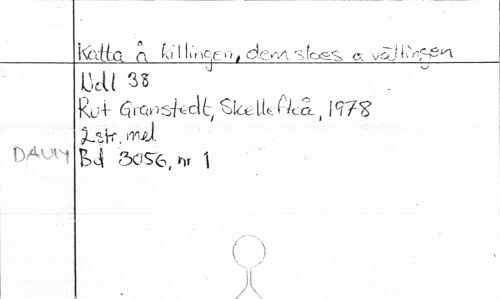 Katta å killingen, dem sloes a vällingen
Udl 38
Rut Granstedt, Skellefteå, 1978
2 str. mel
DAUM Bd 3056, nr 1